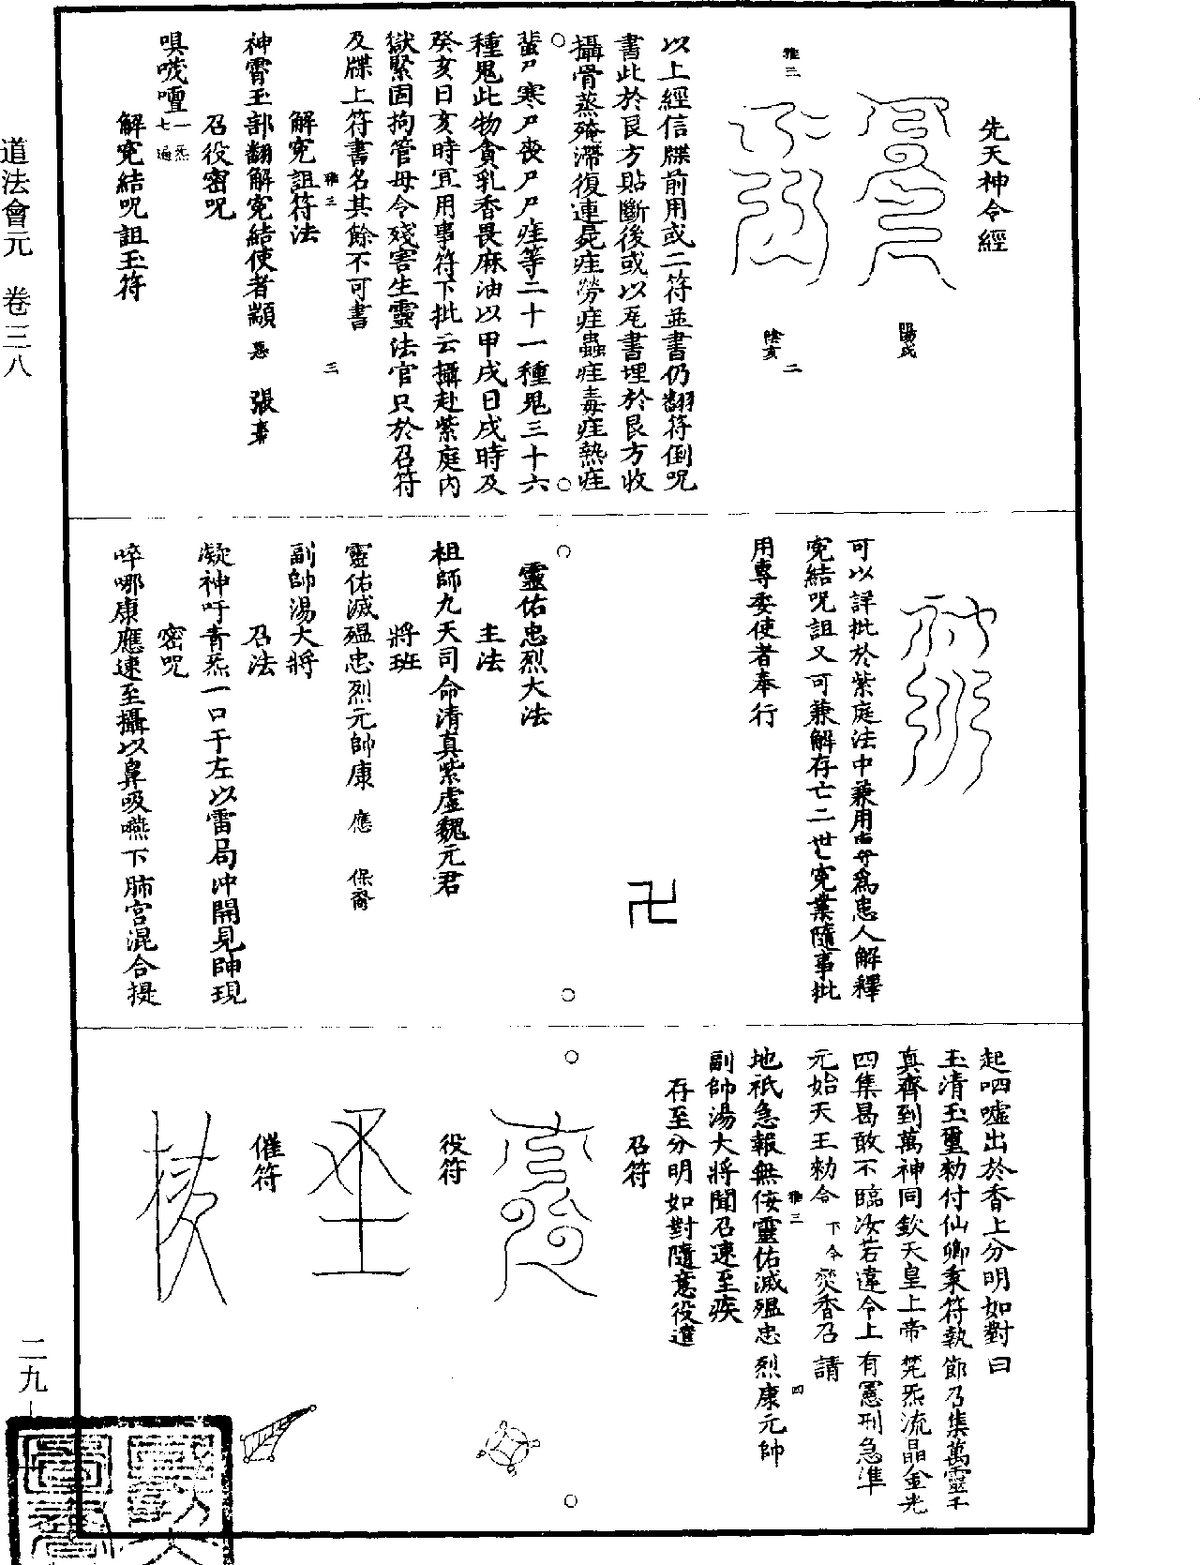 道法會元　卷三八
先天神令經
陽戌
陰亥
雅三
二
以上經信牒前用或二符並書仍翻符倒呪
書此於艮方貼斷後或以瓦書埋於艮方收
攝骨蒸殗滯復連屍疰勞疰蟲疰毒疰熱疰
蜚尸寒尸喪尸尸疰等二十一種鬼三十六
種鬼此物貪乳香畏麻油以甲戌日戌時及
癸亥日亥時宜用事符下批云攝赴紫庭內
獄緊固拘管毋令殘害生靈法官只於召符
及牒上符書名其餘不可書
雅三
三
解冤詛符法
神霄玉部翻解冤結使者顓愚　張
召役密呪
唄㘅囆一炁七遍
解冤結呪詛玉符
可以詳批於紫庭法中兼用專爲患人解釋
冤結呪詛又可兼解存亡二世冤業隨事批
用專委使者奉行
卍
靈佑忠烈大法
主法
祖師九天司命清真紫虛魏元君
將班
靈佑滅瘟忠烈元帥康應　保裔
副帥湯大將
召法
凝神吁青炁一口于左以雷局冲開見帥現
密呪
啐哪康應速至攝以鼻吸嚥下肺宮混合提
起呬噓出於香上分明如對曰
玉清玉璽勑付仙卿秉符執節召集萬靈千
真齊到萬神同欽天皇上帝梵炁流晶金光
四集曷敢不臨汝若違令上有憲刑急準
元始天王勑令　下令焚香召請
地祇急報無佞靈佑滅瘟忠烈康元帥
雅三
四
副帥湯大將聞召速至疾
存至分明如對隨意役遣
召符
役符
催符
二九